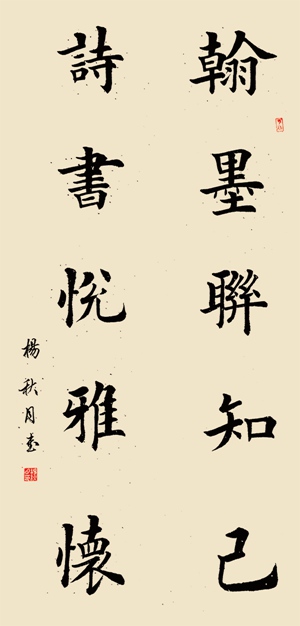 翰墨聯知己
詩書悅雅懷
楊秋月書